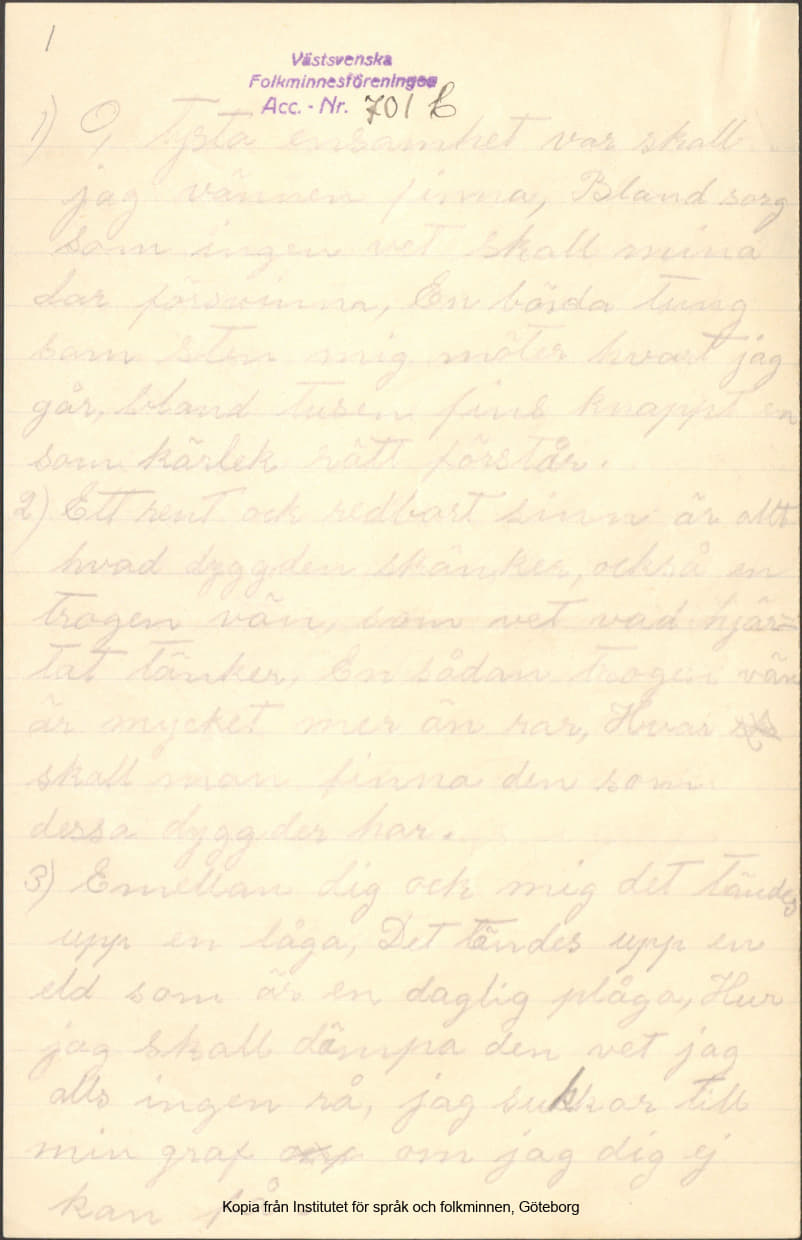 1
Västsvenska
Folkminnesföreningen
Acc. - Nr. 701 C
1) O, Tysta ensamhet var skall
jag vännen finna, Bland sorg
som ingen vet skall mina
dar försvinna, En börda tung
som sten mig möter hvart jag
går, bland tusen fins knappt en
som kärlek rätt förstår.
2) Ett rent och redbart sinn är allt
hvad dyggden skänker, också en
trogen vän, som vet vad hjär=
tat tänker. En sådan trogen vän
är mycket mer än rar, Hvar
skall man finna den som
dessa dyggder har.
3) Emellan dig och mig det tändes
upp en låga, Det tändes upp en
eld som är en daglig plåga, Hur
jag skall dämpa den vet jag
alls ingen rå, jag sukkar till
min graf om jag dig ej
kan få.
Kopia från Institutet för språk och folkminnen, Göteborg